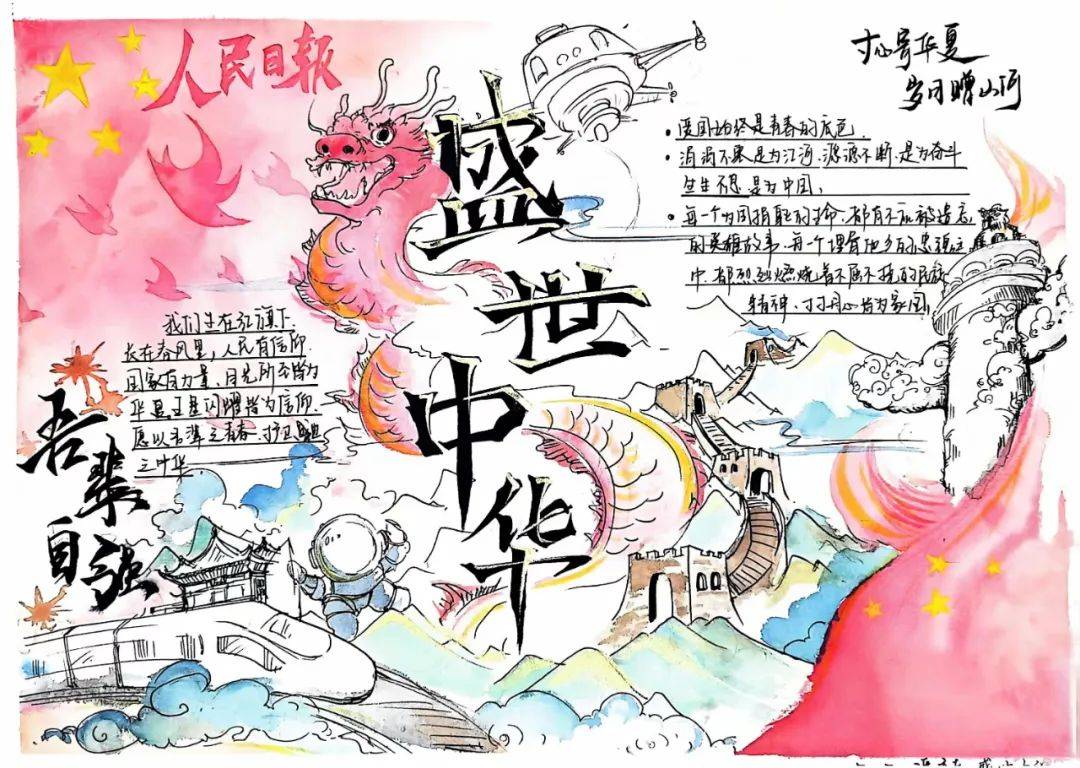 人民日报
盛世中华
寸心寄华夏
岁月赠山河
爱国始终是青春的底色
涓涓不累是为江河，源源不断，是为奋斗
生生不息是为中国，
每一个为国捐躯的 命，都有不 被遗忘
的英雄故事，每一个埋骨他乡的忠魂
中，都烈烈燃烧着不屈不挠的民族
精神，寸寸丹心皆为家国，
我们生在红旗下
长在春风里，人民有信仰
国家有力量，目光所至皆为
华夏五星闪耀皆为信仰
愿以吾辈之青春，护卫
之中华
吾辈
自强